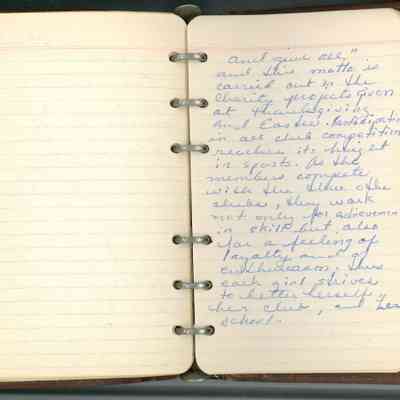 and give all"
and this motto is
carried out in the
Charity projects given
at Thanksgiving
and Easter. Participation
in all club competition
reaches its height
in sports. As the
members compete
with the three other
clubs, they work
not only for achievement
in skill but also
for a feeling of
loyalty and of
enthusiasm, thus
each girl strives
to better herself,
her club, and her
school.